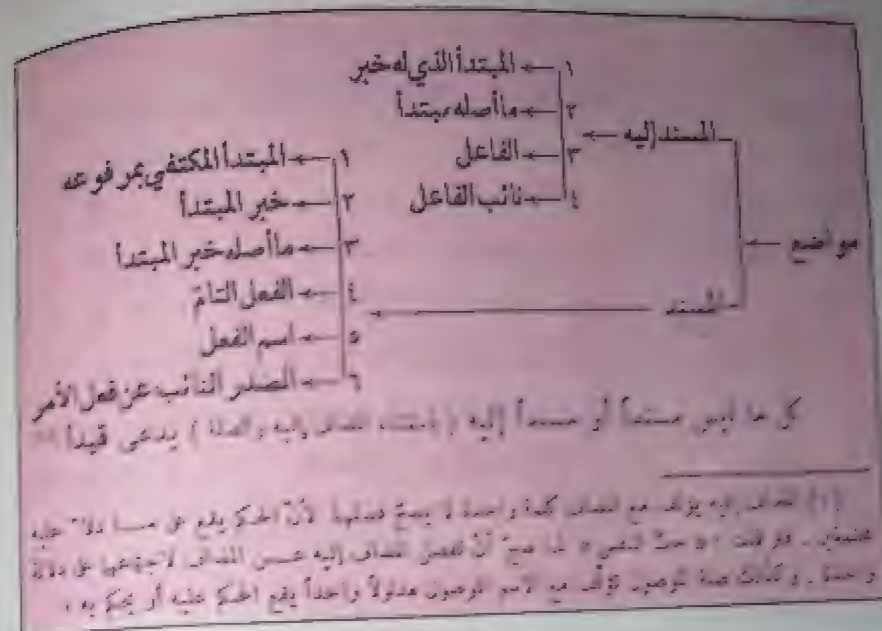 مواضع
المسند إليه
١ المبتدأ الذي له خبر
٢ ما أصله مبتدأ
٣ الفاعل
٤ نائب الفاعل
المسند
١ المبتدأ المكتفي بمرفوعه
٢ خبر المبتدأ
٣ ما أصله خبر المبتدأ
٤ الفعل التام
٥ اسم الفعل
٦ المصدر النائب عن فعل الأمر
كل ما ليس مسنداً أو مسنداً إليه ( باستثناء المضاف إليه والصلة ) يدعى قيداً (١)
(١) المضاف إليه يؤلف مع المضاف كلمة واحدة لا يصح فصلها لأن الحكم يقع على ما دلا عليه
مجتمعين . فلو قلت : « حبّ النفس » لما صحّ أن تفصل المضاف إليه عن المضاف لاجتماعهما على دلالة
واحدة . وكذلك صلة الموصول تؤلف مع الاسم الموصول مدلولاً واحداً يقع الحكم عليه أو يحكم به ،